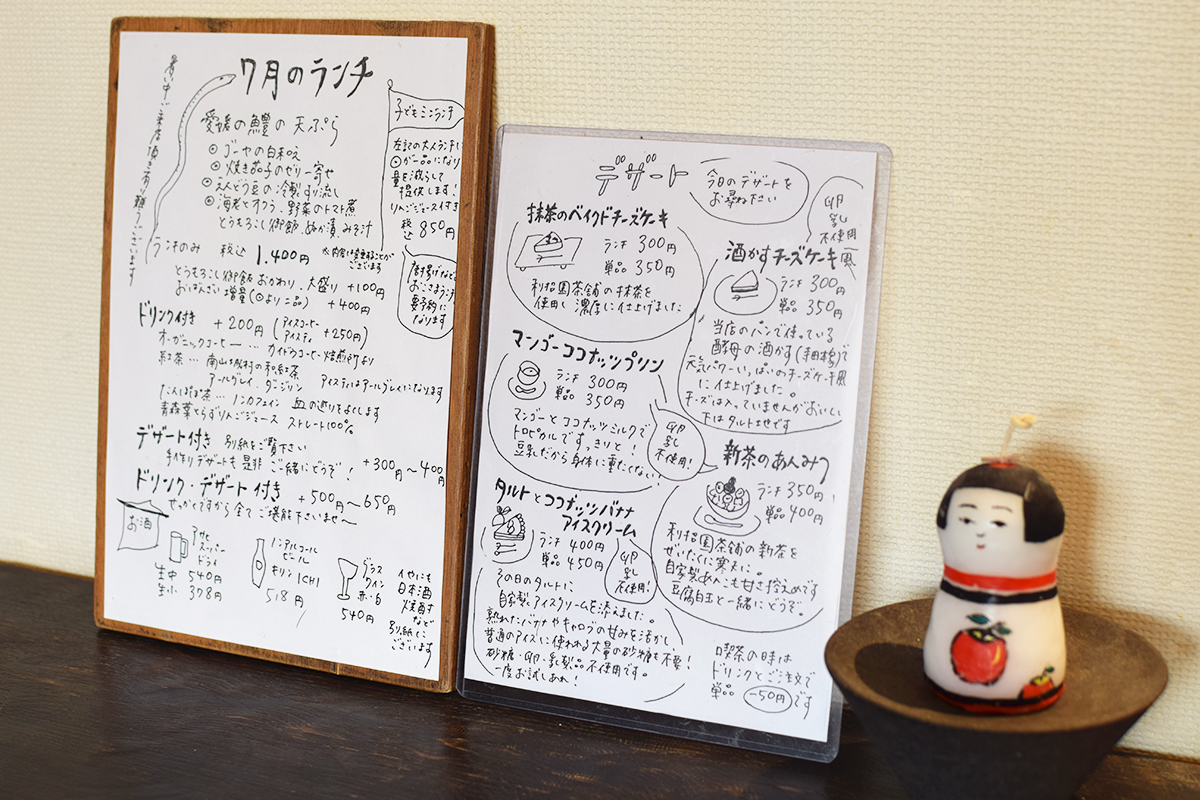 7月のランチ
暑い中ご来店頂き有り難うございます
愛媛の鱧の天ぷら
◎ゴーヤの白和え
◎焼き茄子のゼリー寄せ
◎えんどう豆の冷製すり流し
◎海老とオクラ、野菜のトマト煮
とうもろこし御飯、ぬか漬、みそ汁
子どもミニランチ
左記の大人ランチより
◎が一品になり
量を減らして
提供します!
りんごジュース付き
税込 850円
唐揚げなどの
おこさまランチは
要予約に
なります
ランチのみ 税込 1,400円
ございます
とうもろこし御飯おかわり、大盛り +100円
おばんざい増量(◎より二品) +400円
ドリンク付き +200円 (アイスコーヒー
アイスティ +250円)
オーガニックコーヒー … カイドウコーヒー焙煎所より
紅茶 … 南山城村の和紅茶
アールグレイ、ダージリン アイスティはアールグレイになります
たんぽぽ茶 … ノンカフェイン 血の巡りをよくします
青森葉とらずりんごジュース ストレート100%
デザート付き 別紙をご覧下さい
手作りデザートも是非ご一緒にどうぞ! +300円〜400円
ドリンク・デザート付き +500円〜650円
せっかくですから全てご堪能下さいませ〜
お酒
アサヒ
スーパー
ドライ
生中 540円
生小 378円
ノンアルコール
ビール
キリンICHI
518円
グラス
ワイン
赤・白
540円
他にも
日本酒
焼酎など
別紙に
ございます
デザート
今日のデザートを
お尋ね下さい
抹茶のベイクドチーズケーキ
ランチ 300円
単品 350円
利招園茶舗の抹茶を
使用し濃厚に仕上げました
卵
乳
不使用
酒かすチーズケーキ風
ランチ 300円
単品 350円
当店のパンで使っている
酵母の酒かす(寺田本家)で
元気パワーいっぱいのチーズケーキ風
に仕上げました。
チーズは入っていませんがおいしい
下はタルト生地です
マンゴーココナッツプリン
ランチ 300円
単品 350円
マンゴーとココナッツミルクで
トロピカルですっきりと!
豆乳だから身体に重たくない!
卵
乳
不使用!
新茶のあんみつ
ランチ 350円
単品 400円
利招園茶舗の新茶を
ぜいたくに寒天に。
自家製あんこも甘さ控えめです
豆腐白玉と一緒にどうぞ。
タルトとココナッツバナナ
アイスクリーム
ランチ 400円
単品 450円
卵
乳
不使用!
その日のタルトに
自家製アイスクリームを添えました。
熟れたバナナやキャロブの甘みを活かし、
普通のアイスに使われる大量の砂糖も不要!
砂糖・卵・乳製品不使用です。
一度お試しあれ!
喫茶の時は
ドリンクとご注文で
単品 -50円です